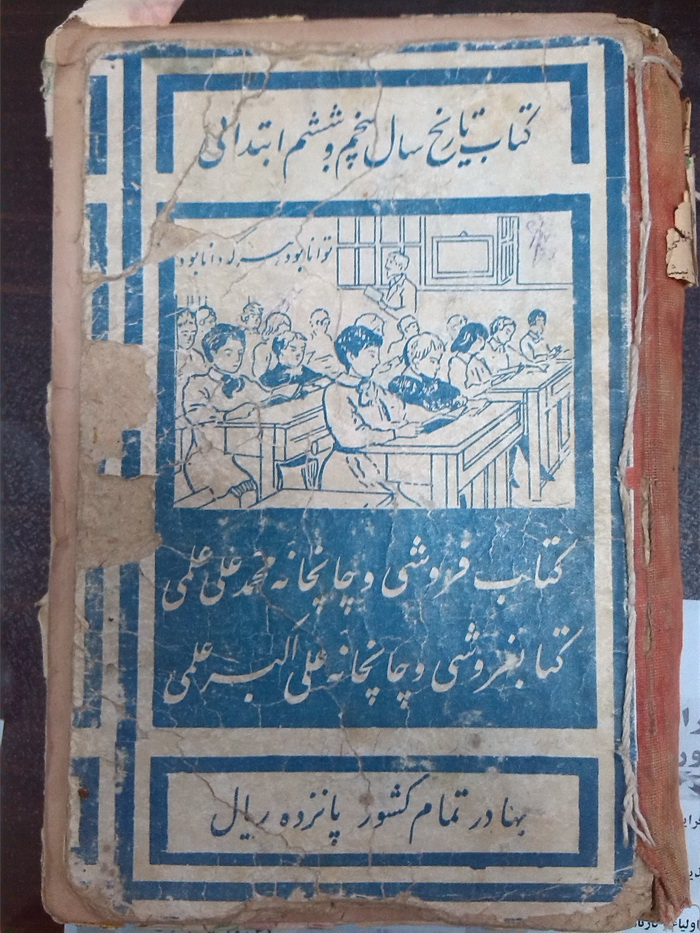 کتاب تاریخ سال پنجم و ششم ابتدائی
توانا بود هر که دانا بود
کتاب فروشی و چاپخانه محمد علی علمی
کتابفروشی و چاپخانه علی اکبر علمی
بها در تمام کشور پانزده ریال